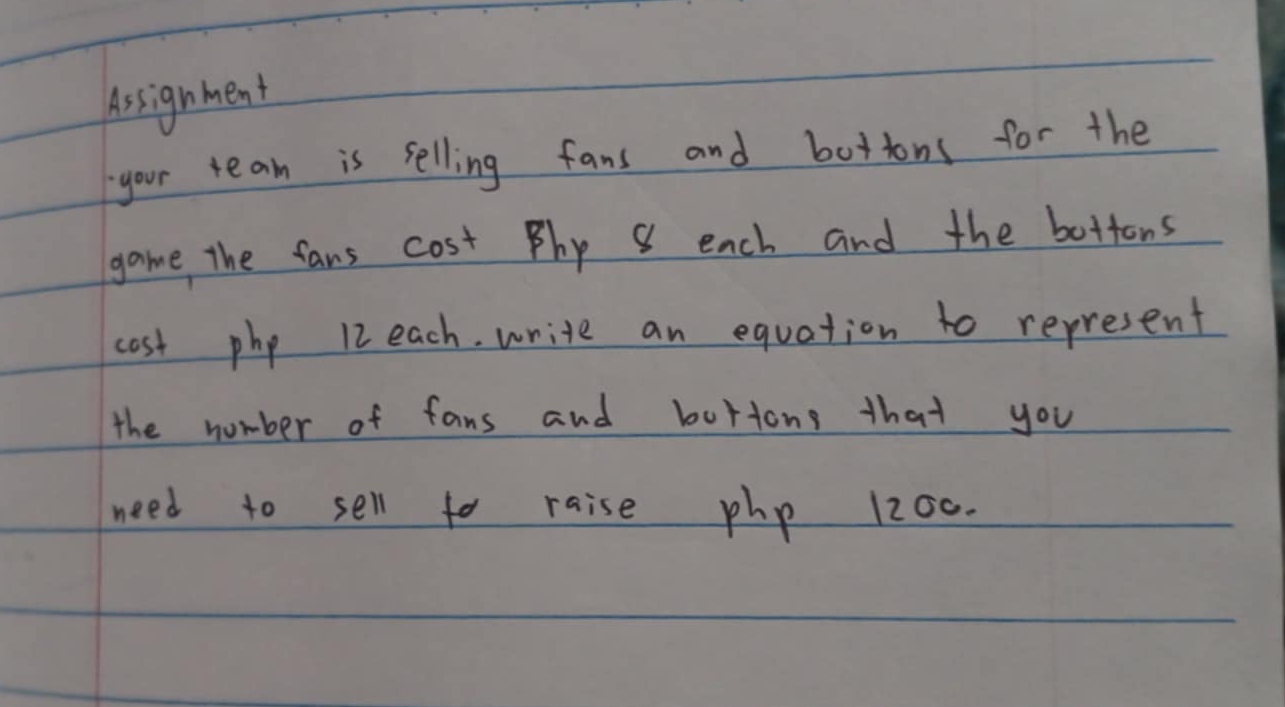 Assignment
-your team is selling fans and buttons for the
game, the fans cost Php 8 each and the buttons
cost php 12 each. write an equation to represent
the number of fans and buttons that you
need to sell to raise php 1200.